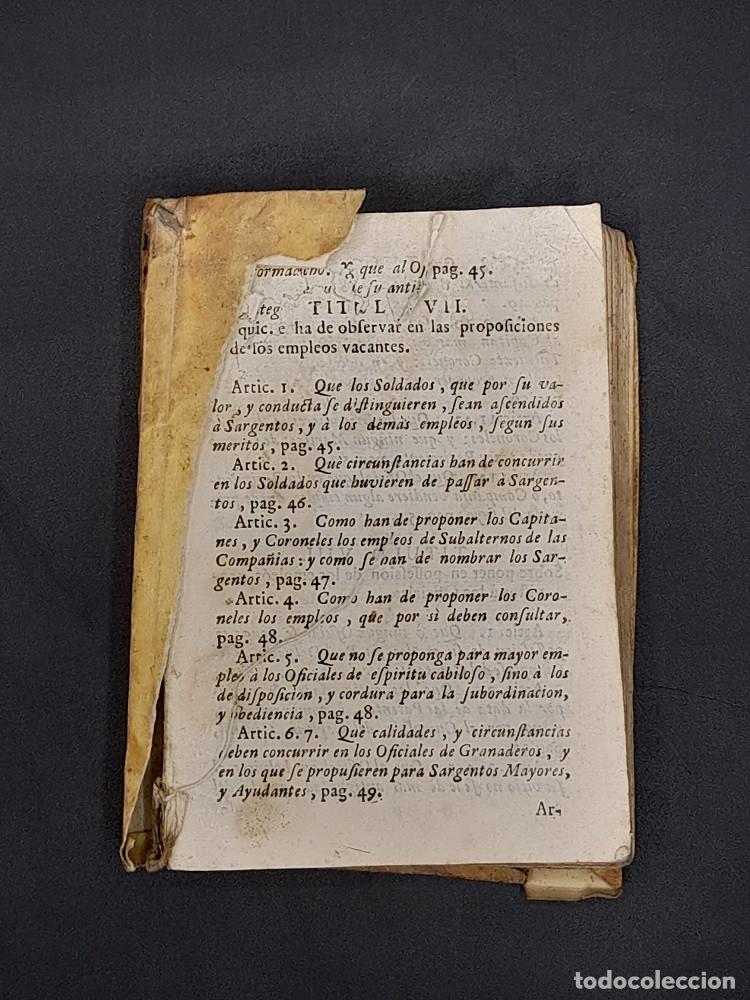 que al pag. 45.
TITUL VII.
ha de observar en las proposiciones
de los empleos vacantes.
Artic. 1. Que los Soldados, que por su va-
lor, y conducta se distinguieren, sean ascendidos
à Sargentos, y à los demàs empleos, segun sus
meritos, pag. 45.
Artic. 2. Què circunstancias han de concurrir
en los Soldados que huvieren de passar à Sargen-
tos, pag. 46.
Artic. 3. Como han de proponer los Capita-
nes, y Coroneles los empleos de Subalternos de las
Compañias: y como se han de nombrar los Sar-
gentos, pag. 47.
Artic. 4. Como han de proponer los Coro-
neles los empleos, que por sì deben consultar,
pag. 48.
Artic. 5. Que no se proponga para mayor em-
pleo à los Oficiales de espiritu cabiloso, sino à los
de disposicion, y cordura para la subordinacion,
y obediencia, pag. 48.
Artic. 6. 7. Què calidades, y circunstancias
deben concurrir en los Oficiales de Granaderos, y
en los que se propusieren para Sargentos Mayores,
y Ayudantes, pag. 49.
Ar-
todocoleccion